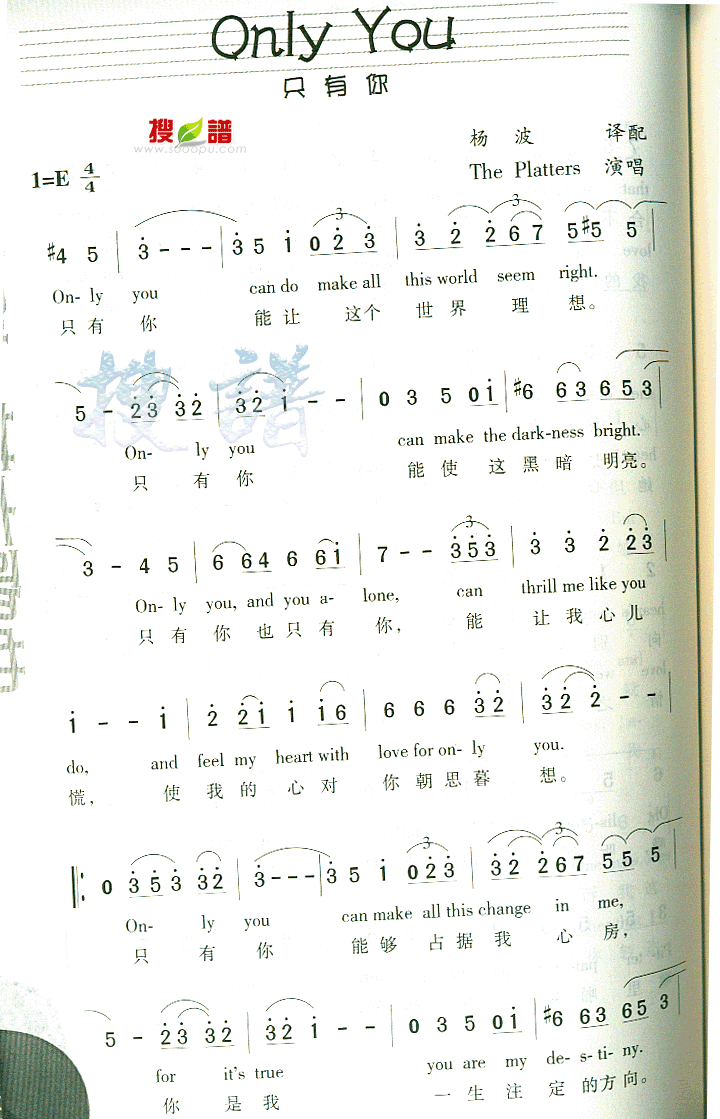 Only You
只有你
搜谱
www.sooopu.com
杨 波 译配
1=E 4/4
The Platters 演唱
#4 5 | 3 - - - | 3 5 i 0 2 3 | 3 2 2 6 7 | 5 #5 5
On- ly you can do make all this world seem right.
只 有 你 能 让 这 个 世 界 理 想。
5 - 2 3 3 2 | 3 2 i - - | 0 3 5 0 i | #6 6 3 6 5 3
On- ly you can make the dark-ness bright.
只 有 你 能 使 这 黑 暗 明 亮。
3 - 4 5 | 6 6 4 6 6 i | 7 - - 3 5 3 | 3 3 2 2 3
On- ly you, and you a- lone, can thrill me like you
只 有 你 也 只 有 你, 能 让 我 心 儿
i - - i | 2 2 i i i 6 | 6 6 6 3 2 | 3 2 2 - -
do, and feel my heart with love for on- ly you.
慌, 使 我 的 心 对 你 朝 思 暮 想。
0 3 5 3 3 2 | 3 - - - | 3 5 i 0 2 3 | 3 2 2 6 7 | 5 5 5
On- ly you can make all this change in me,
只 有 你 能 够 占 据 我 心 房,
5 - 2 3 3 2 | 3 2 i - - | 0 3 5 0 i | #6 6 3 6 5 3
for it's true you are my de- s- ti- ny.
你 是 我 一 生 注 定 的 方 向。